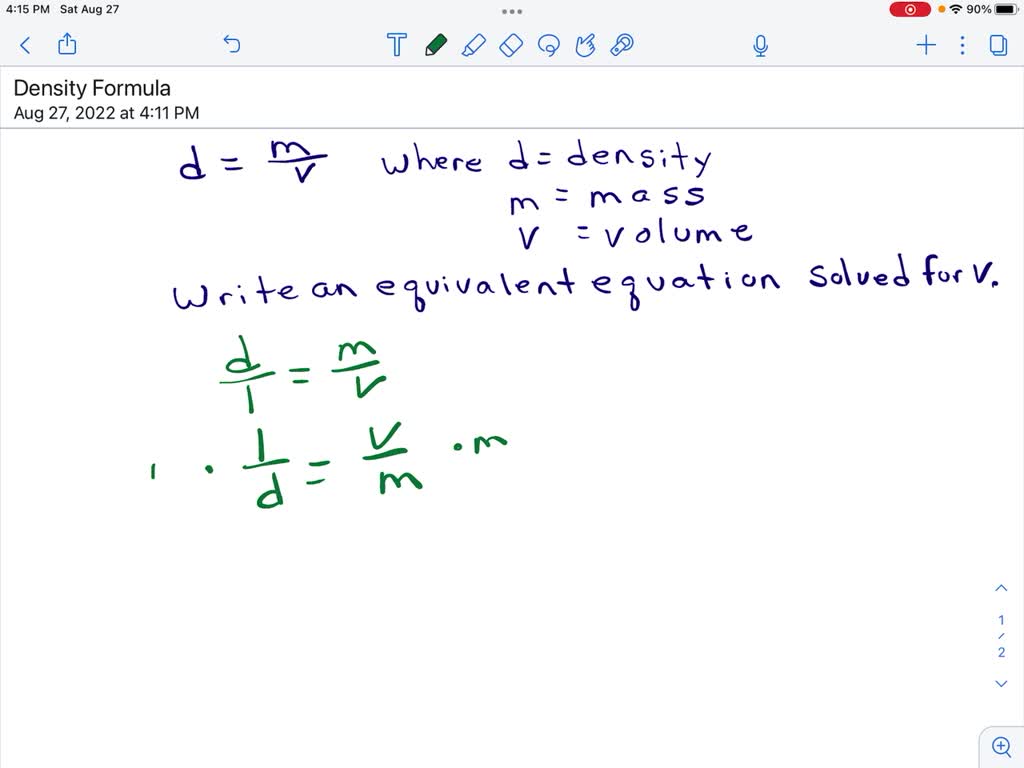 4:15 PM Sat Aug 27
90%
T
Density Formula
Aug 27, 2022 at 4:11 PM
d = m/v where d = density
m = mass
v = volume
Write an equivalent equation solved for v.
d/1 = m/v
· 1/d = v/m · m
1
/
2